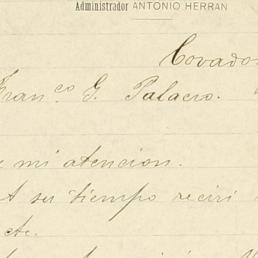 Administrador ANTONIO HERRAN
Covado
Fran.co G. Palacio.
mi atencion.
A su tiempo reciri
etc.